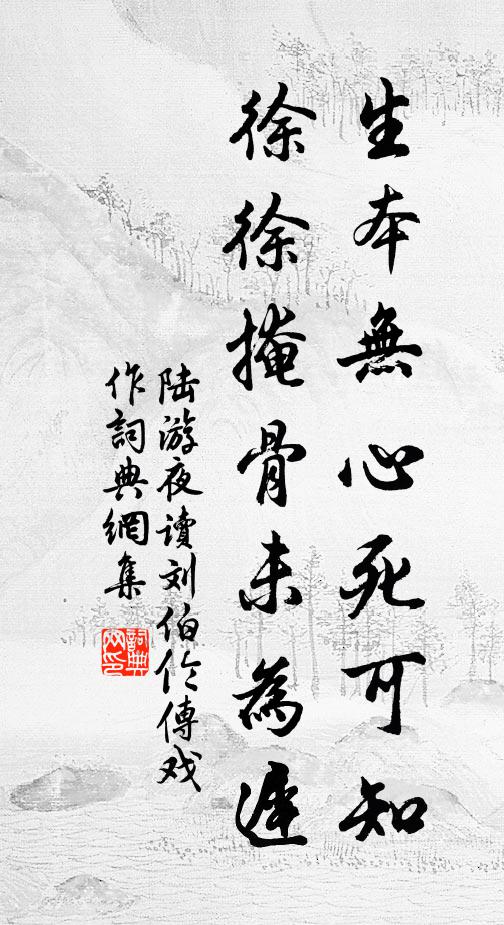 生本無心死可知
徐徐掩骨未為遲
陆游夜读刘伯伶傳戏
作詞典網集
詞典网印